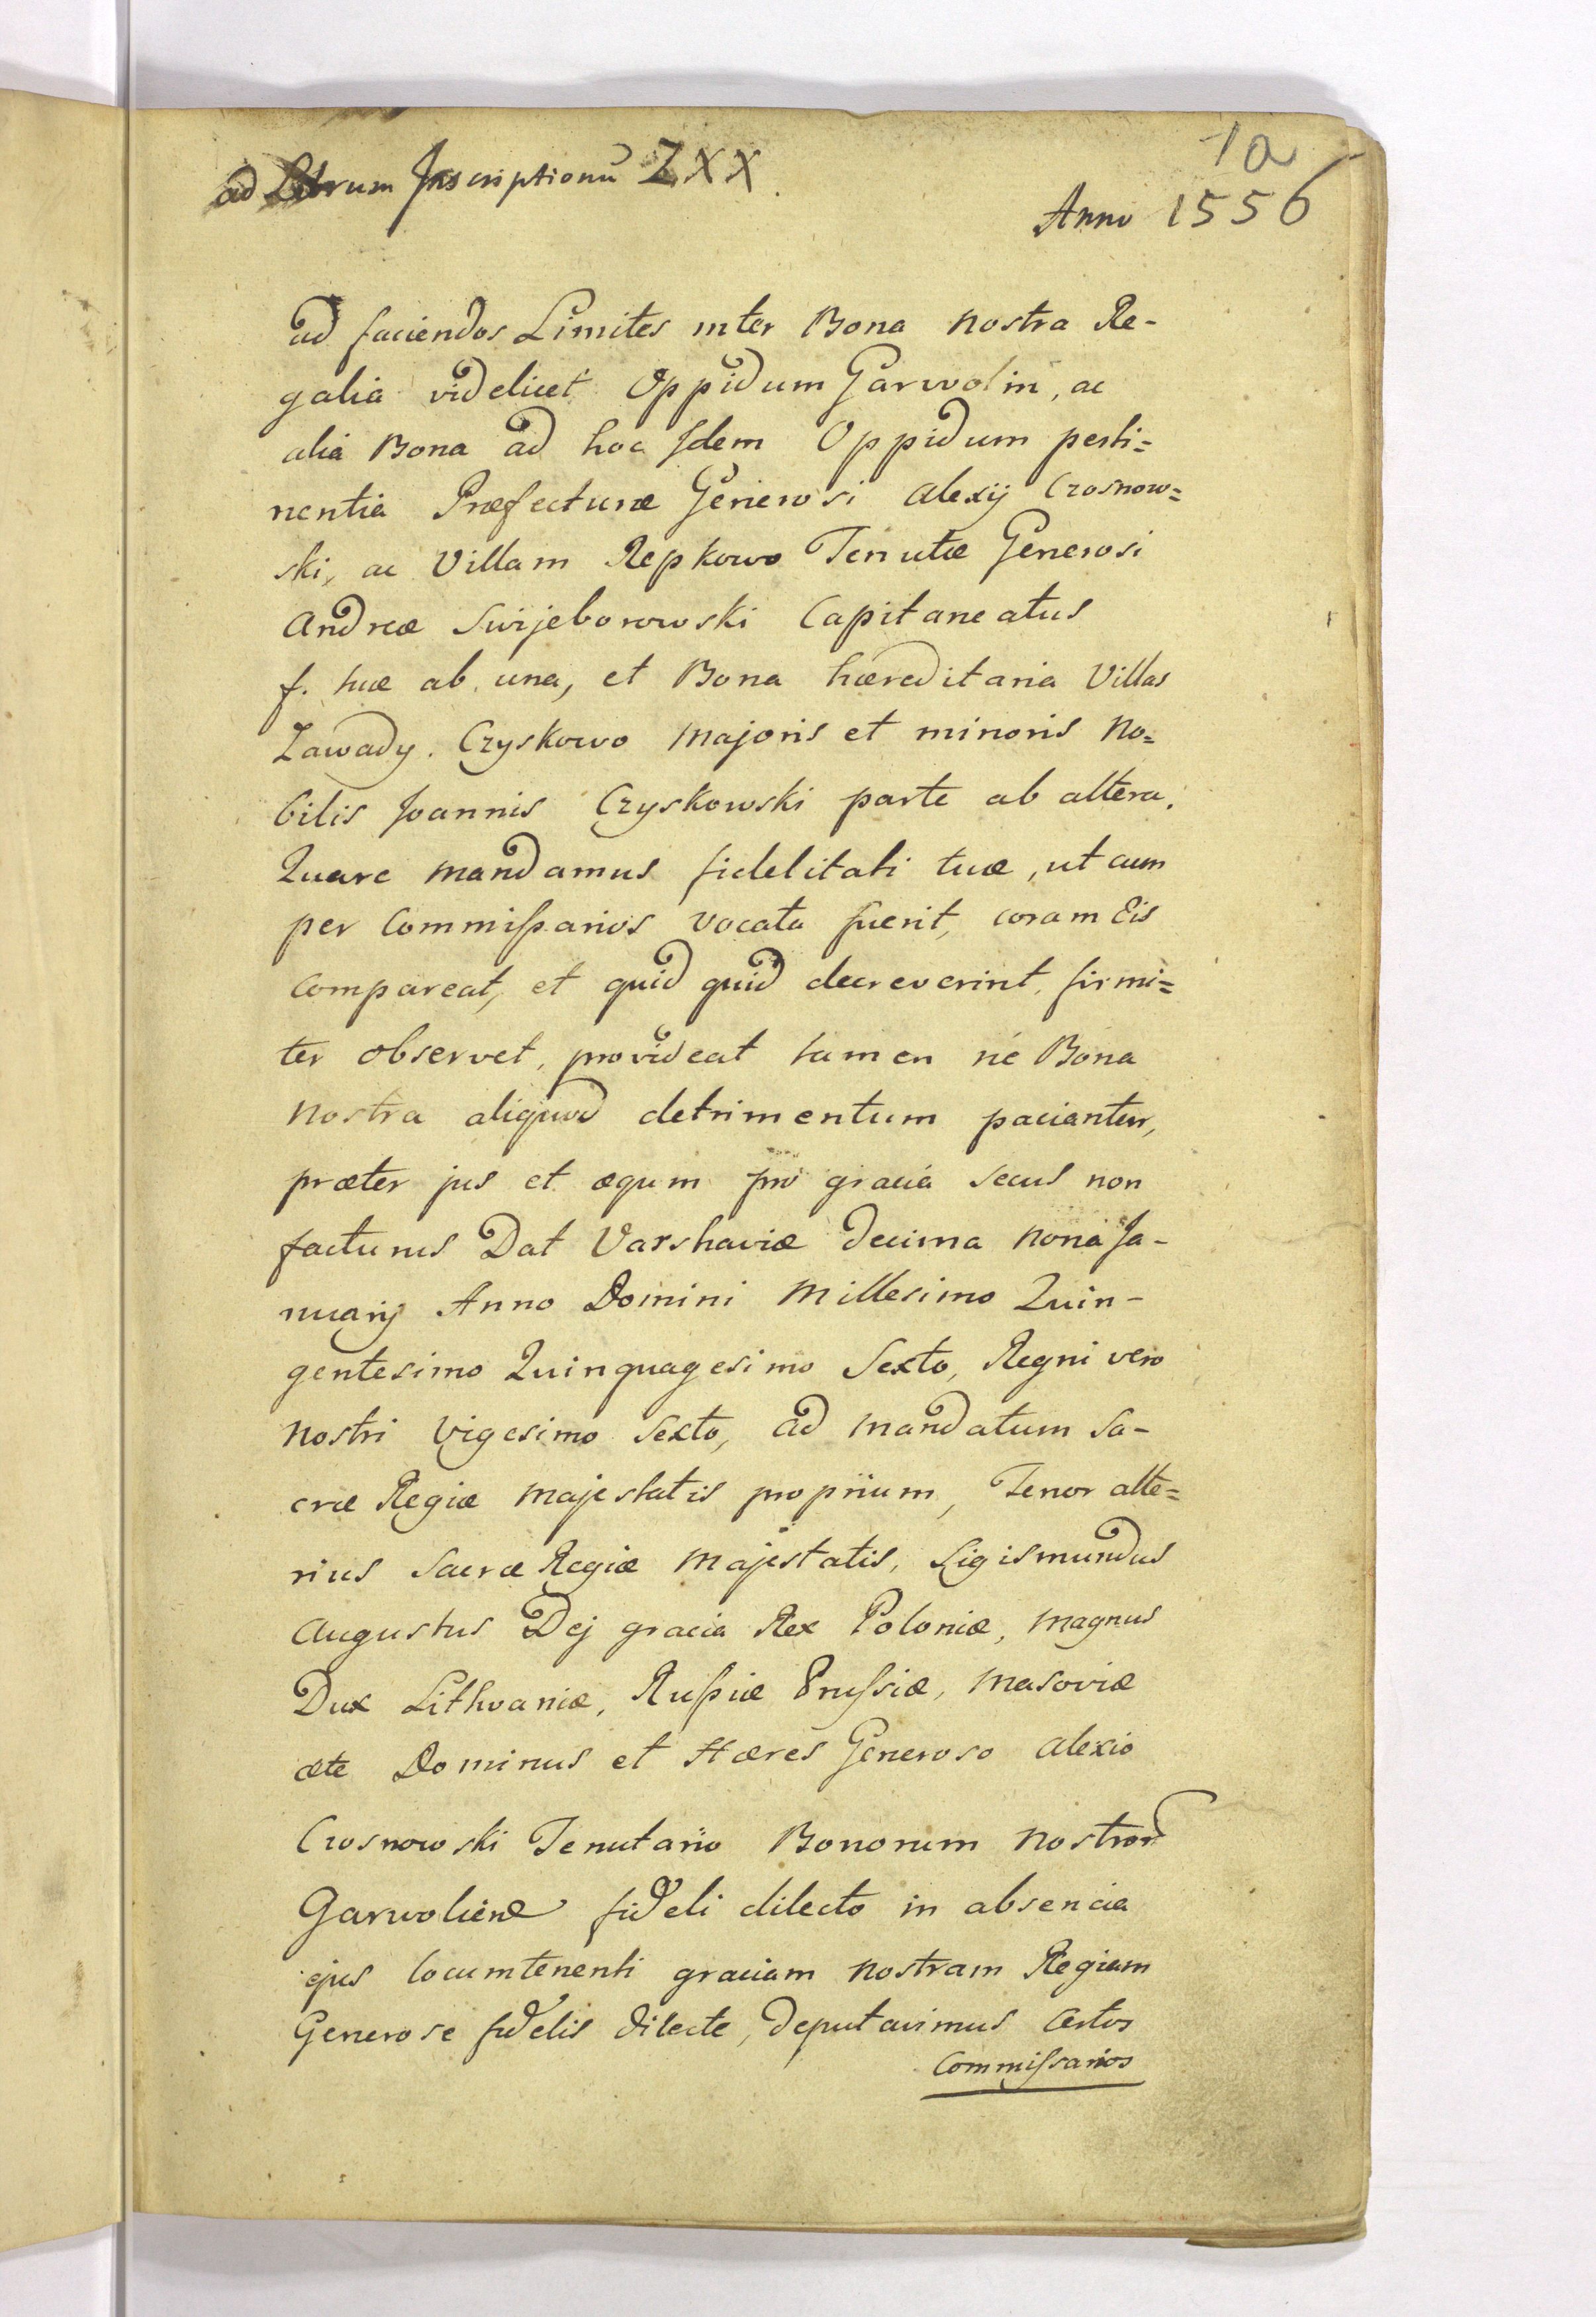 ad Librum Inscriptionũ ZXX
1a
Anno 1556
ad faciendos Limites inter Bona nostra Re-
galia videlicet Oppidum Garwolin, ac
alia Bona ad hoc Idem Oppidum perti=
nentia Præfecturæ Generosi Alexij Crosnow=
ski, ac Villam Repkowo Tenutæ Generosi
Andreæ Swijeborowski Capitaneatus
f. tuæ ab una, et Bona hæreditaria Villas
Zawady. Czyskowo Majoris et minoris No=
bilis Joannis Czyskowski parte ab altera.
Quare mandamus fidelitati tuæ, ut cum
per Commissarios vocata fuerit, coram Eis
compareat, et quid quid decreverint, firmi=
ter observet, provideat tamen ne Bona
nostra aliquod detrimentum paciantur,
præter jus et æqum pro gracia secus non
facturus Dat Varshaviæ decima nona Ja-
nuarij Anno Domini Millesimo Quin-
gentesimo Quinquagesimo Sexto, Regni vero
nostri Vigesimo Sexto, ad mandatum Sa-
cræ Regiæ Majestatis proprium, Tenor alte=
rius Sacræ Regiæ Majestatis, Sigismundus
Augustus Dej gracia Rex Poloniæ, Magnus
Dux Lithvaniæ, Russiæ Prussiæ, Masoviæ
æte Dominus et Hæres Generoso Alexio
Crosnowski Tenutario Bonorum Nostror
Garwoliens fideli dilecto in absencia
ejus locumtenenti graciam nostram Regiam
Generose fidelis dilecte, deputavimus Certos
Commissarios